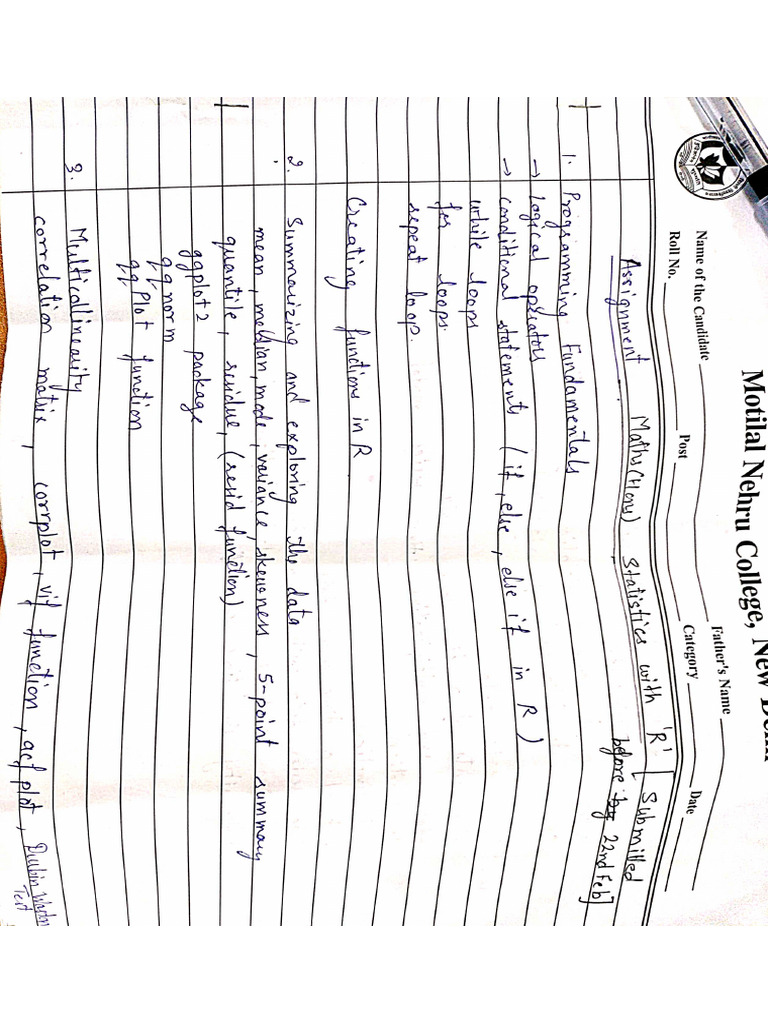 Motilal Nehru College, New Delhi
Name of the Candidate Father's Name
Roll No. Post Category Date
Assignment Maths(Hons) Statistics with 'R' [Submitted
before by 22nd Feb]
1. Programming Fundamentals
→ Logical operators
→ conditional statements (if, else, else if in R)
while loops
for loops.
repeat loop.
Creating functions in R
2. Summarizing and exploring the data
mean, median, mode, variance, skewness, 5-point summary
quantile, residue, (resid function)
ggplot2 package
qqnorm
qqplot function
3. Multicollinearity
correlation matrix, corrplot, vif function, acf plot, Durbin Watson
Test